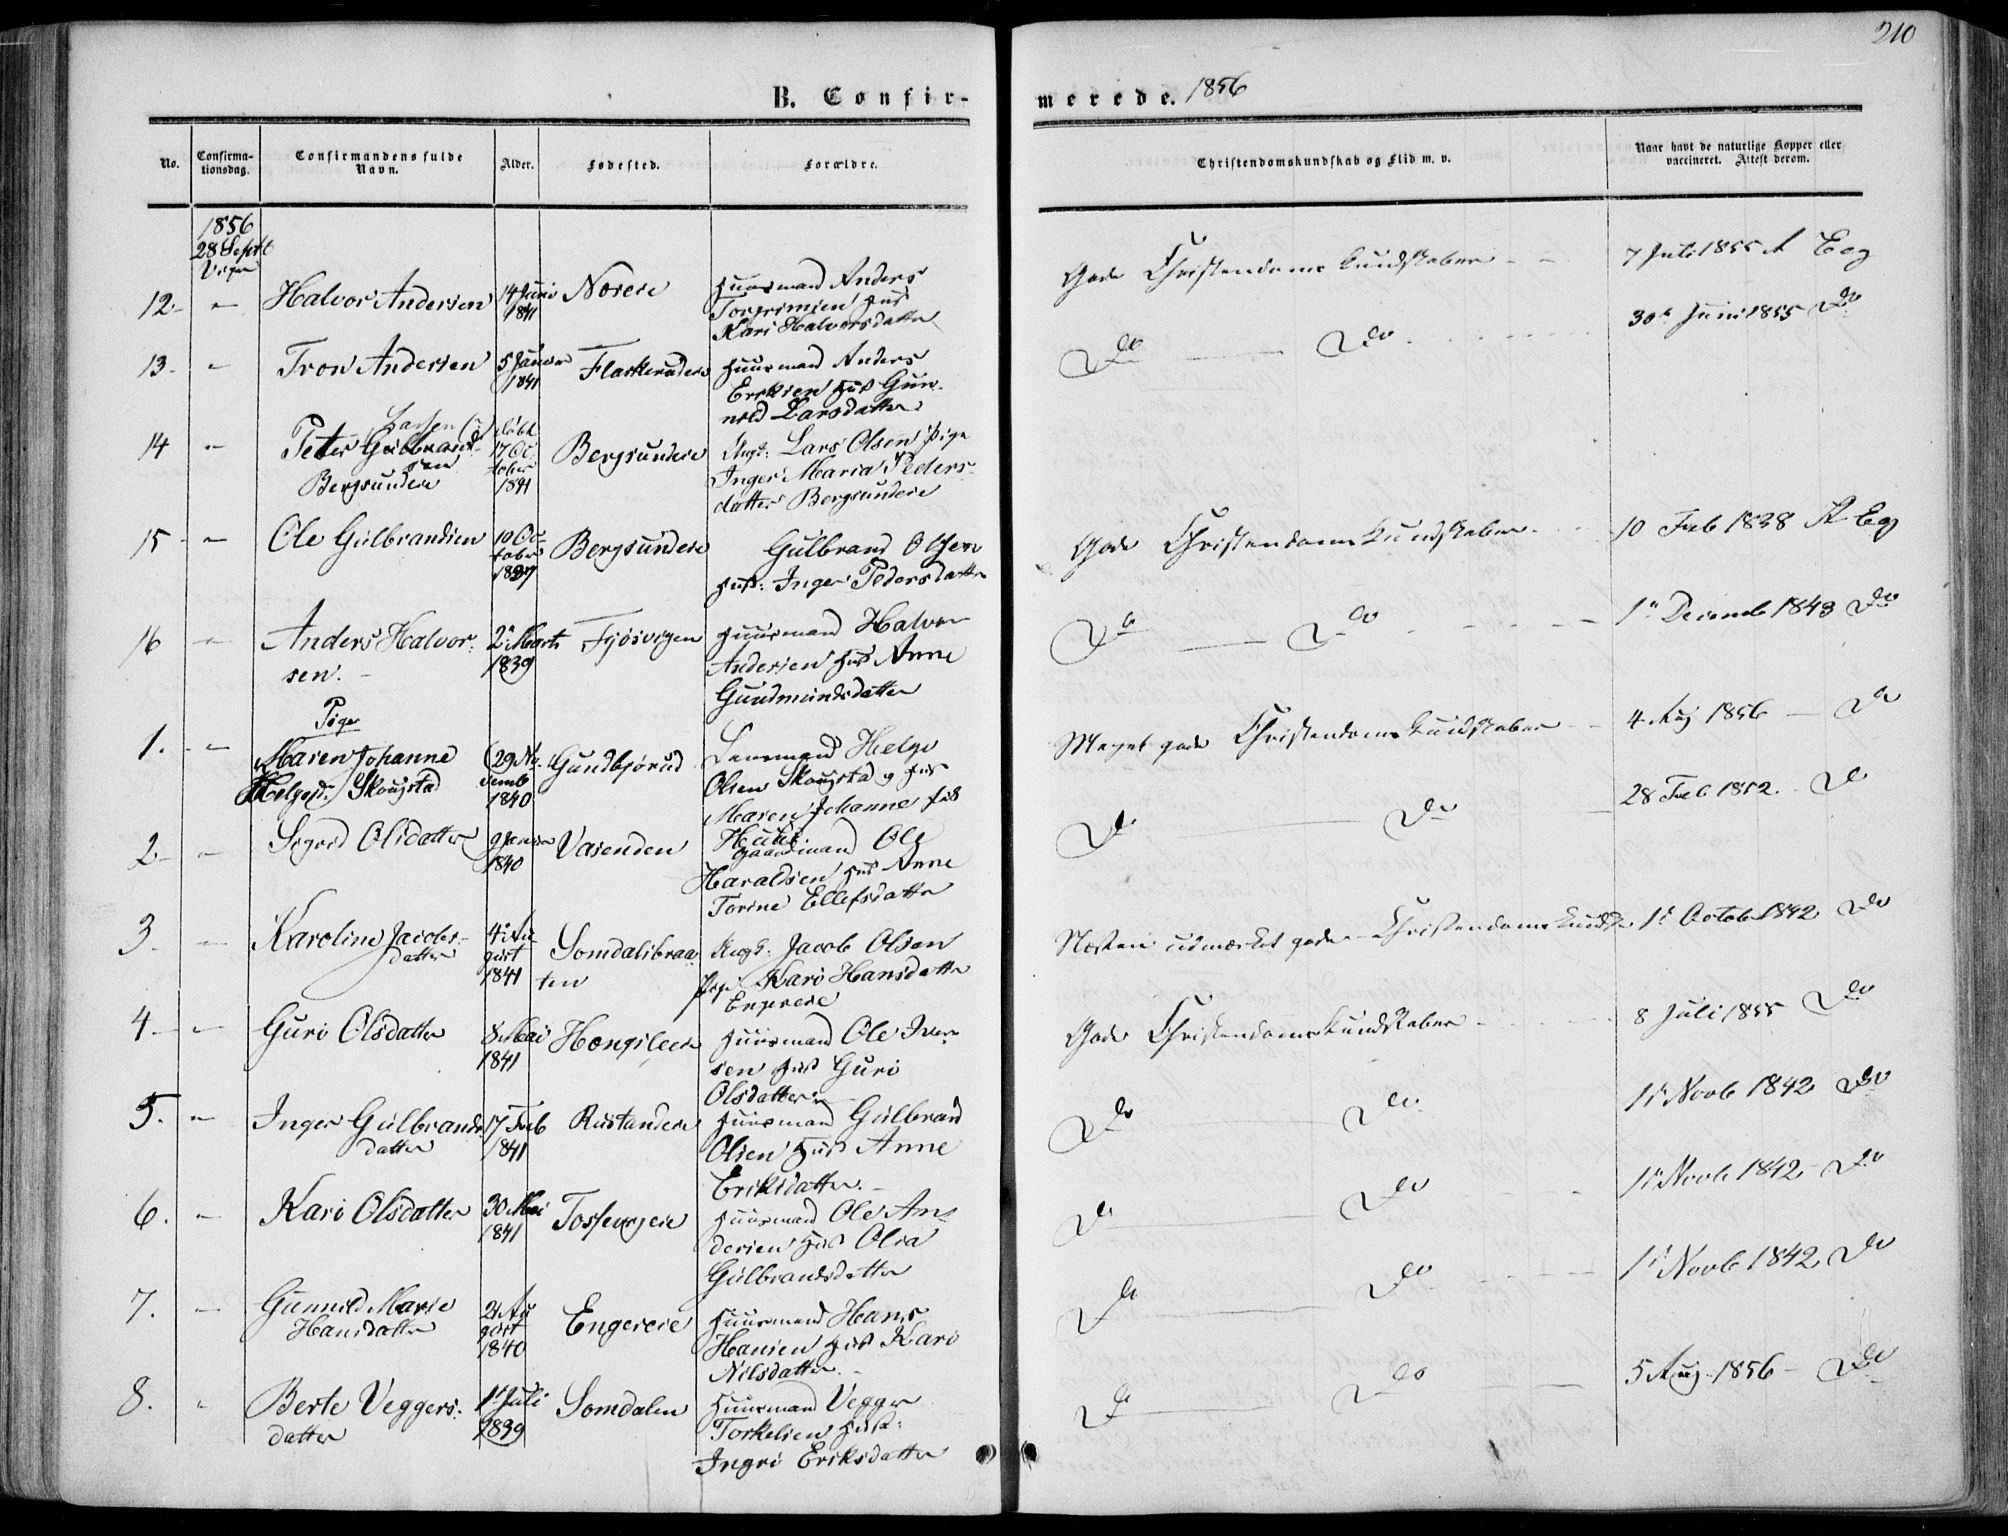 210
B. Confir-
merede. 1856
No.
Confirma-
tionsdag.
Confirmandens fulde
Navn.
Alder.
Fødested.
Forældre.
Christendomskundskab og Flid m. v.
Naar havt de naturlige Kopper eller
vaccineret. Attest derom.
1856
28 Septb
12. " Halvor Andersen 14 Juni 1841 Noreie
Huusmand Anders
Torgrimsen Hust
Kari Halvorsdatter
Gode Christendoms Kundskaber - - 7 Juli 1855 A Eeg
13. " Tron Andersen 5 Januar 1841
Huusmand Anders
Eriksen Hust Gun-
nild Larsdatter
Do Do 30te Juni 1855 Do
14 " Peter Gulbrand-
sen
Bergsundeie
17 Oc-
tober
1841
Bergsundeie
Ungk: Lars Olsen Pige
Inger Maria Peders-
datter Bergsundeie
15 " Ole Gulbrandsen 10 Oc-
tober
Bergsundeie
Gulbrand Olsen
Hust: Inger Pedersdatter
Gode Christendoms Kundskaber. 10 Feb 1838 A Eeg
16 " Anders Halvor-
sen.
2 Marts
1839
Huusmand Halvor
Andersen Hust Anne
Gundmundsdatter
Do Do 1 Decemb 1843 Do
Piger
1. " Maren Johanne
Helgesd. Skougstad
29 No-
vemb
1840
Gundbjørud
Lensmand Helge
Olsen Skougstad og Hust
Maren Johanne
Meget gode Christendoms Kundskaber - 4 Aug 1856 - Do
2 " Sigrid Olsdatter 9 Januar
1840
Vasenden
Gaardmand Ole
Haraldsen Hust Anne
Torine Ellefsdatter
Do Do 28 Feb 1852. Do
3. " Karoline Jacobs-
datter
4 Au-
gust
1841
Somdalsbraa-
ten
Ungk: Jacob Olsen
Pige Kari Hansdatter
Næsten udmærket gode Christendoms Kundsk 1 Octob 1842 Do
4. " Guri Olsdatter 8 Mai
1841
Huusmand Ole Iver-
sen Hust Guri
Olsdatter
Gode Christendoms Kundskaber - 8 Juli 1855 Do
5. " Inger Gulbrands
datter
17 Feb
1841
Rustandeie
Huusmand Gulbrand
Olsen Hust Anne
Eriksdatter.
Do Do 1 Novb 1842 Do
6. " Kari Olsdatter 30 Mai
1841
Huusmand Ole An-
dersen Hust Olia
Gulbrandsdatter
Do Do 1 Novb 1842 - Do
7. " Gunnild Marie
Hansdatter
21 Au
gust
1840
Engereie
Huusmand Hans
Hansen Hust Kari
Nilsdatter
Do Do 1 Novb 1842 Do
8. " Berte Veggers-
datter
1 Juli
1839
Somdalen
Huusmand Vegger
Torkelsen Hust:
Ingri Eriksdatter
Do Do 5 Aug. 1856 - Do